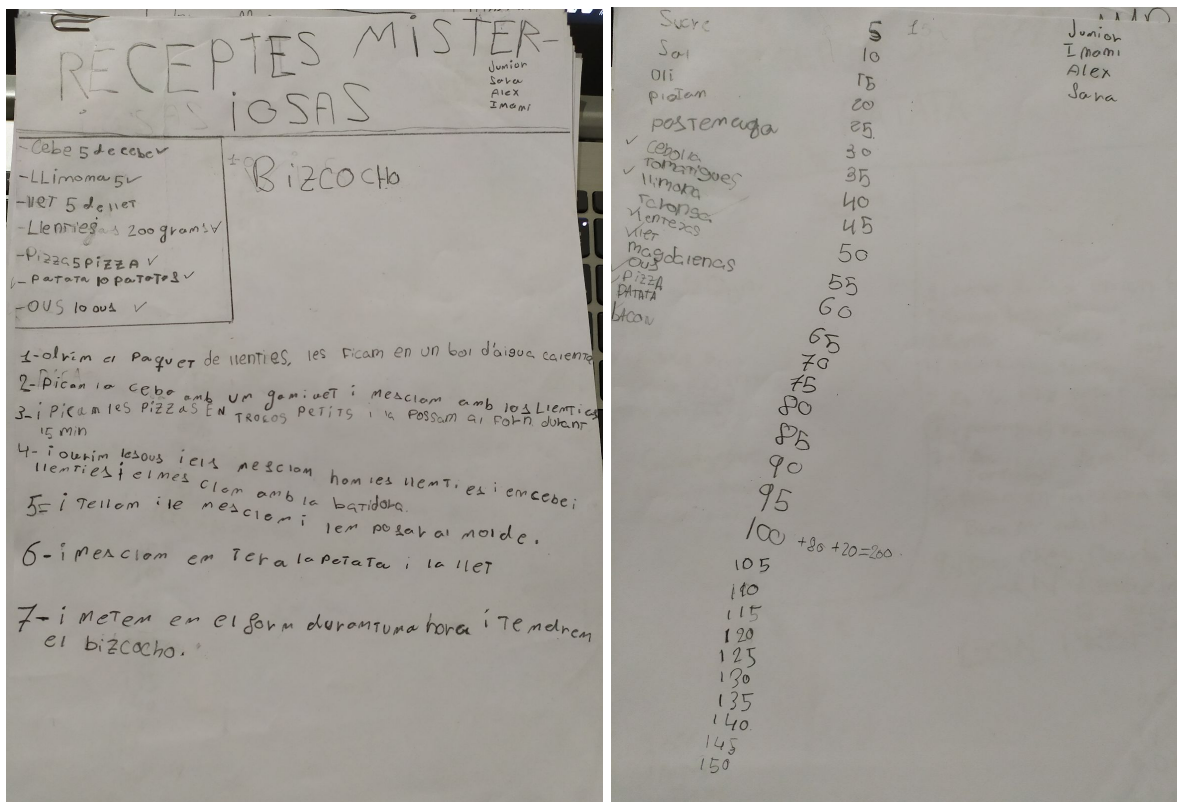 RECEPTES MISTER-
IOSAS
Junior
Sara
Alex
Imami
-Cebe 5 de cebe ✓
-LLimoma 5 ✓
-LLET 5 de llet
-Llenties 200 grams ✓
-Pizza 5 PIZZA ✓
-PaTaTa 10 PaTaTES ✓
-OUS 10 ous ✓
1-
BIZCOCHO
1-obrim el PaqueT de llenties, les ficam en un bol d'aigua calenta
2-Pican la cebe amb um gamiveT i mesclam amb los Llenties
3-i Picam les PIZZAS EN TROSOS PETITS i la Possam al forn durant
15 min
4-i ourim lesous iels mesclam hom les llemTies i emcebei
llenties i elmes clam amb la batidora.
5= i Tellom ile mesclam i lem posar al molde.
6-i mesclam em Tera la PaTaTa i la lleT
7-i meTem em el form duramTuma hora i Temdrem
el bizcocho.
Sucre
Sal
Oli
PlaTam
PosTemaga
✓ Cebolla
Tomamigues
✓ llimona
Taronsa
✓ llentexas
✓ lleT
magdalenas
✓ OUS
✓ PIZZA
✓ PATATA
bACON
5 15
10
15
20
25
30
35
40
45
50
55
60
65
70
75
80
85
90
95
100 +80 +20=200
105
110
115
120
125
130
135
140
145
150
Junior
Imami
Alex
Sara